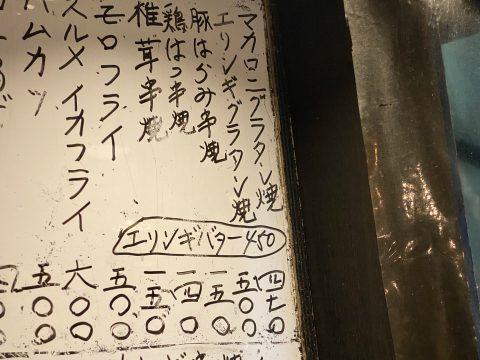 マカロニグラタン焼 四七〇
エリンギグラタン焼 五〇〇
豚はらみ串焼 一五〇
鶏はつ串焼 一四〇
椎茸串焼 一五〇
モロフライ 五〇〇
スルメイカフライ 六〇〇
ハムカツ 五〇〇
エリンギバター450